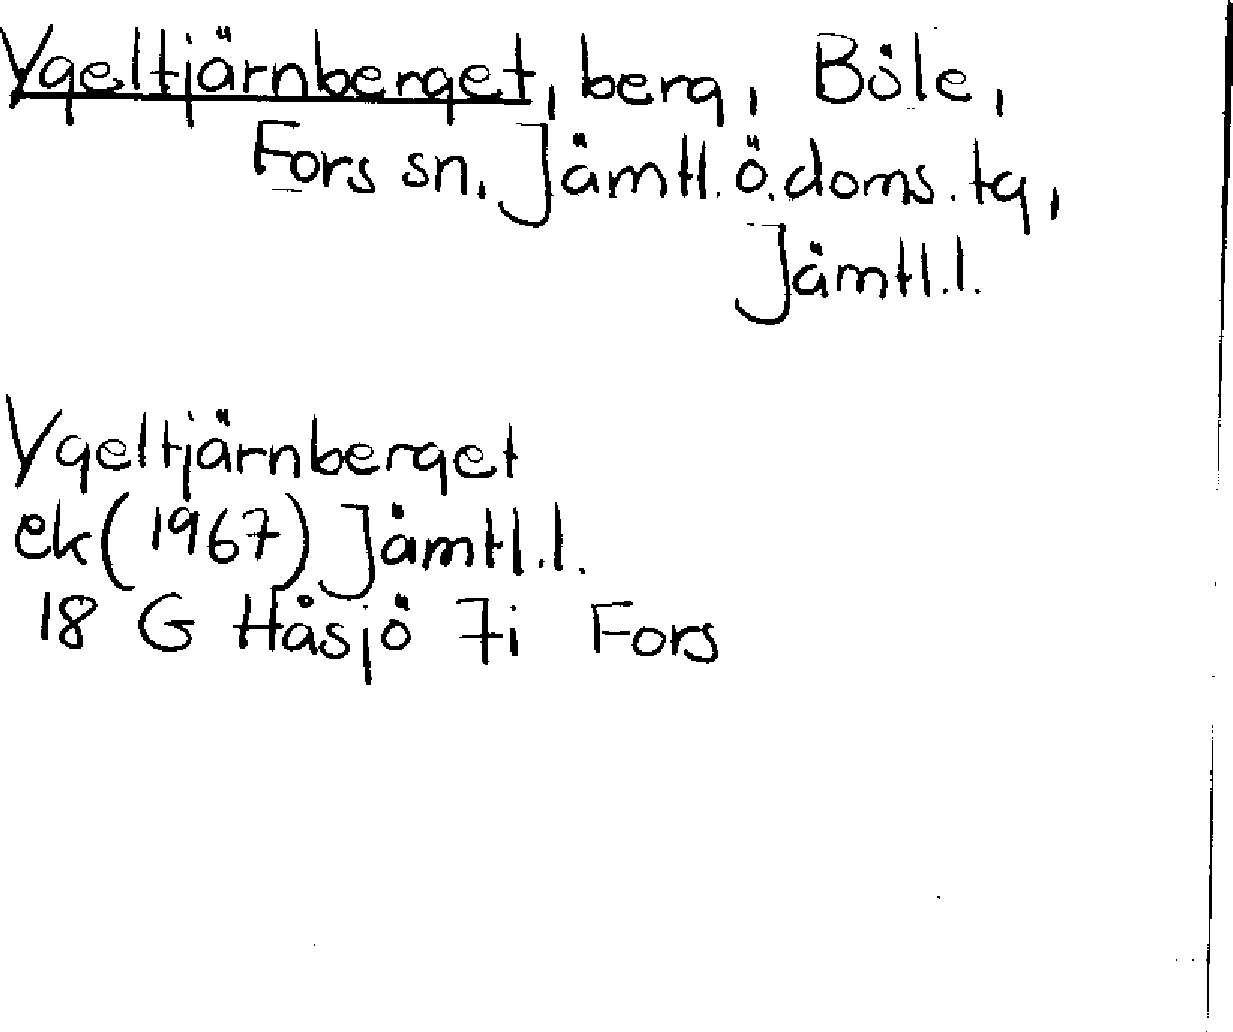 Ygeltjärnberget, berg, Böle,
Fors sn, Jämtl.ö.doms.tg,
Jämtl.l.
Ygeltjärnberget
ek(1967) Jämtl.l.
18 G Håsjö 7i Fors